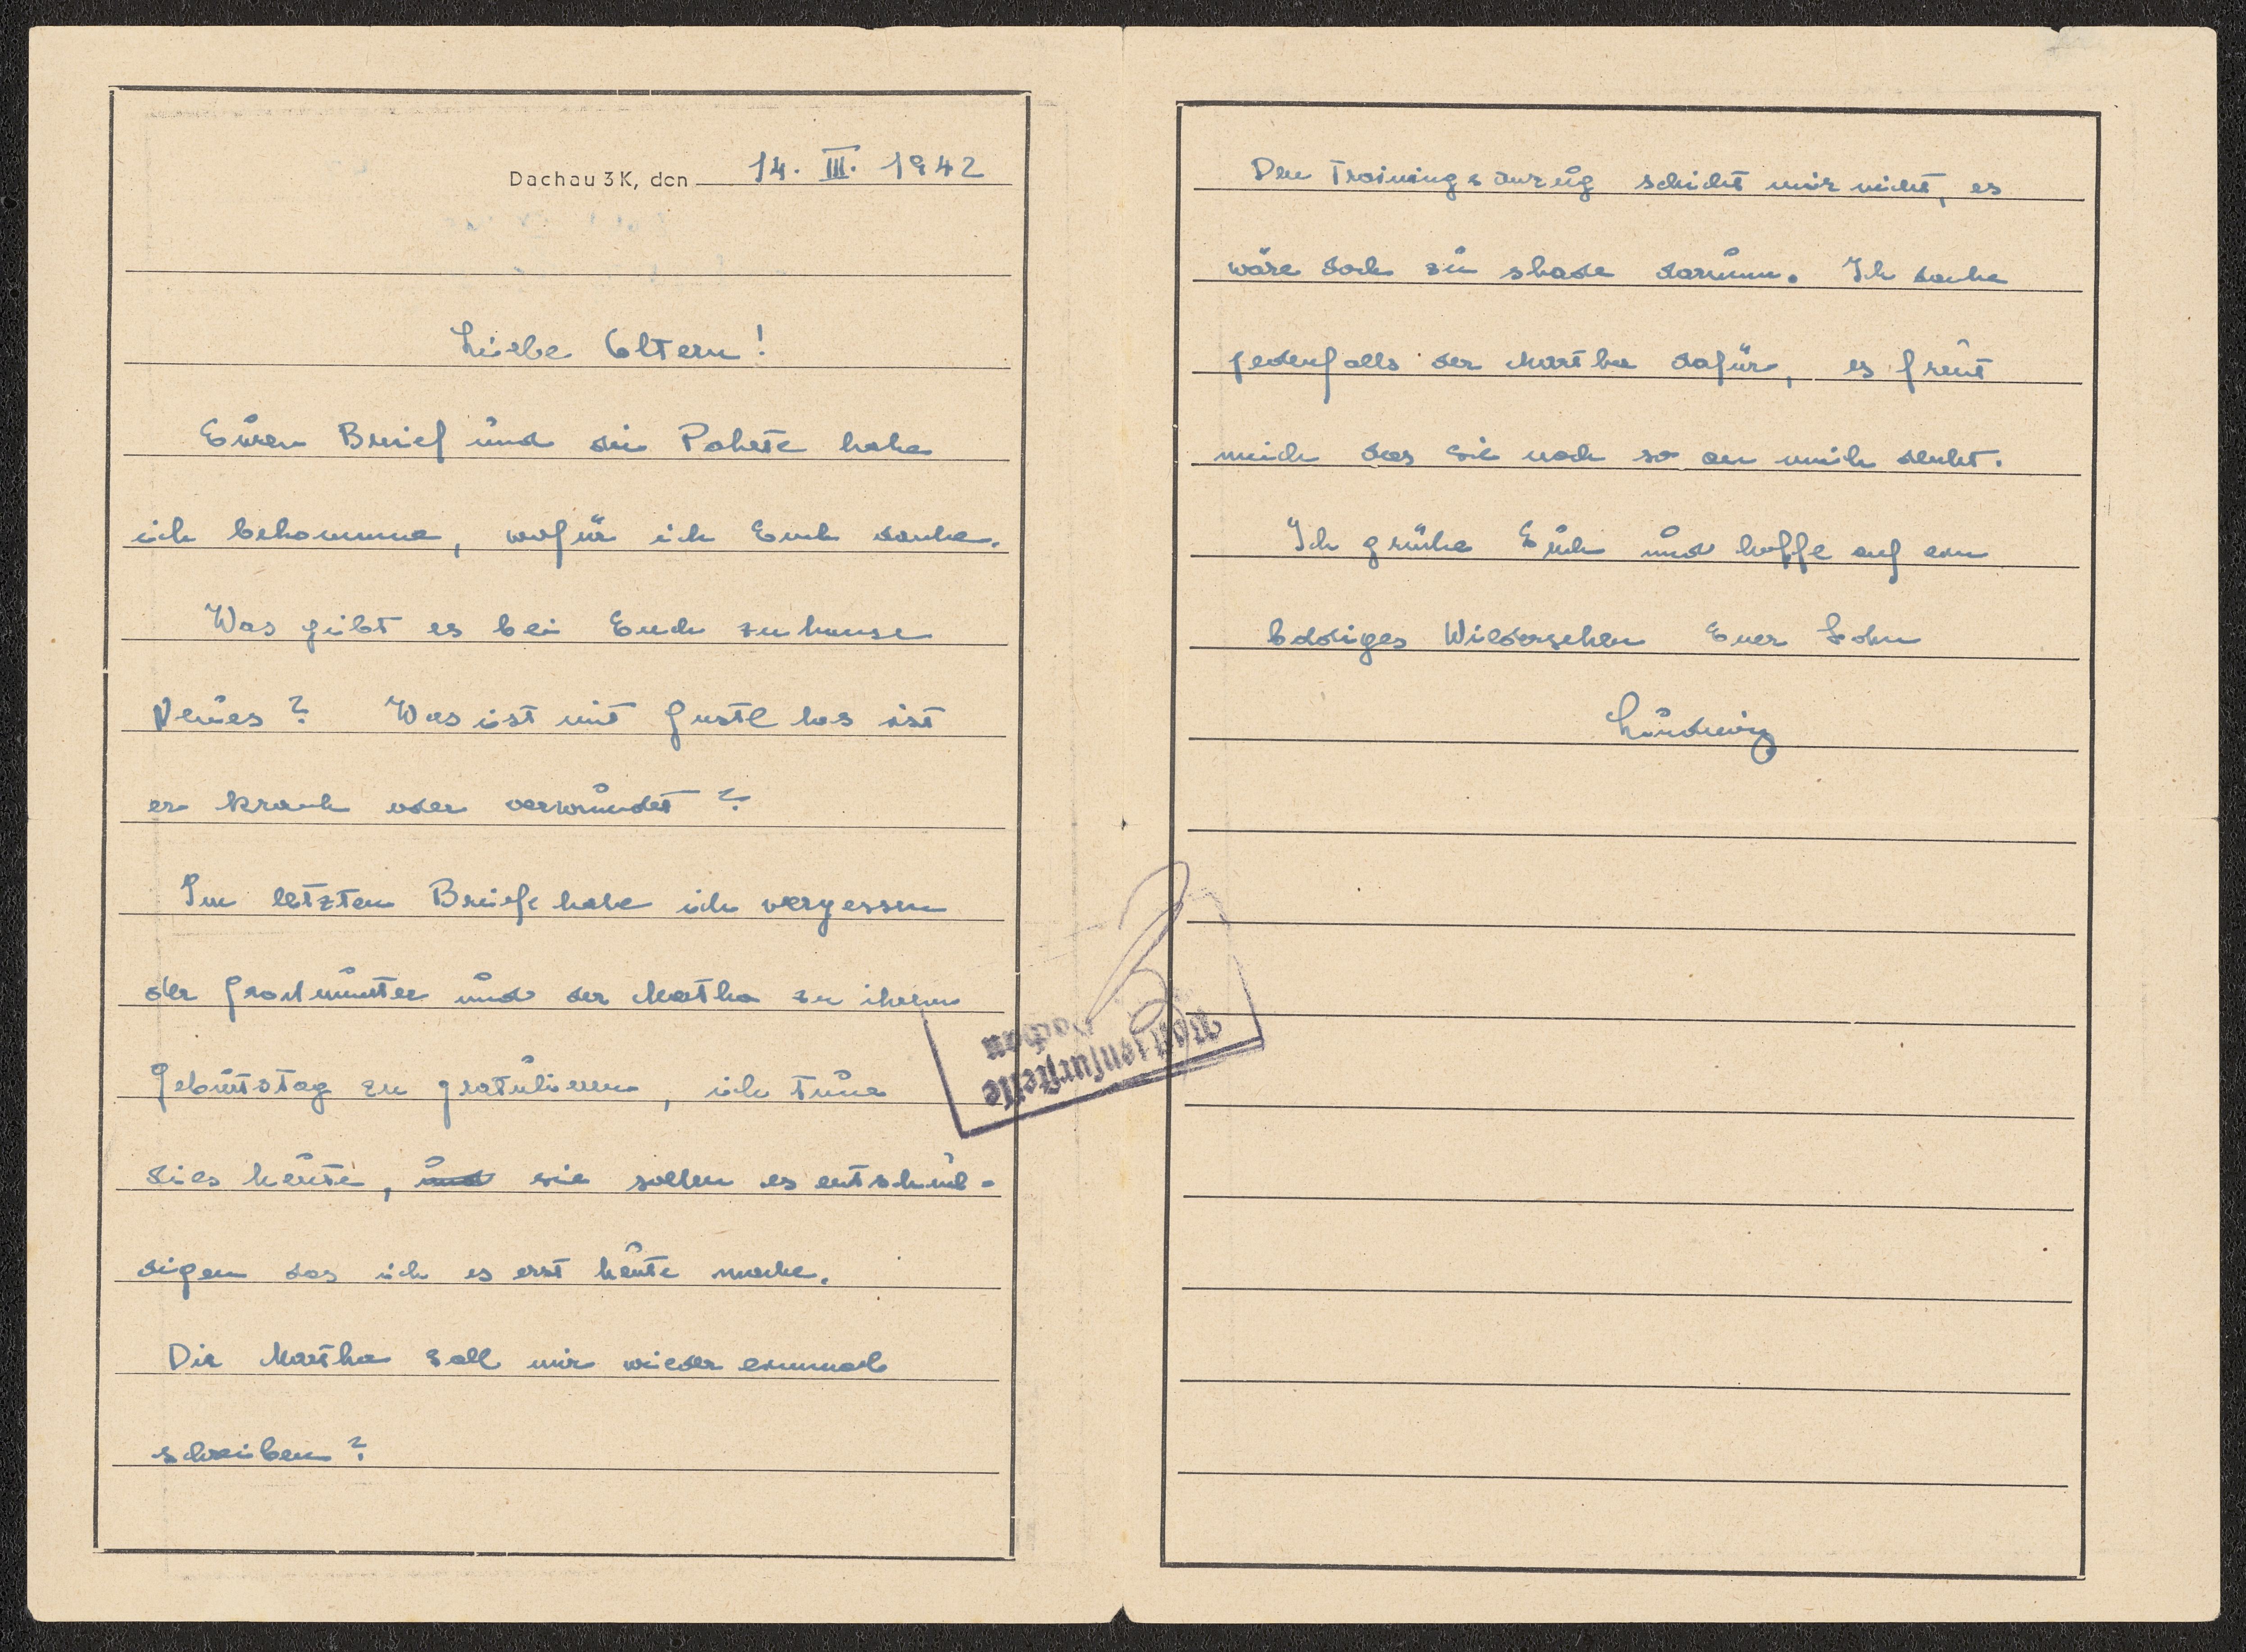 Dachau 3 K, den 14. III. 1942
Liebe Eltern!
Euren Brief und die Pakete habe
ich bekommen, wofür ich Euch danke.
Was gibt es bei Euch zuhause
Neues? Was ist mit Gustl los ist
er krank oder verwundet?
Im letzten Briefe habe ich vergessen
der Großmutter und der Martha zu ihrem
Geburtstag zu gratulieren, ich tue
dies heute, und sie sollen es entschul-
digen das ich es erst heute mache.
Die Martha soll mir wieder einmal
schreiben?
Postzensurstelle
Dachau
Den Trainingsanzug schickt mir nicht, es
wäre doch zu shade darum. Ich danke
jedenfalls der Martha dafür, es freut
mich das sie noch so an mich denkt.
Ich grüße Euch und hoffe auf ein
baldiges Wiedersehen Euer Sohn
Ludwig